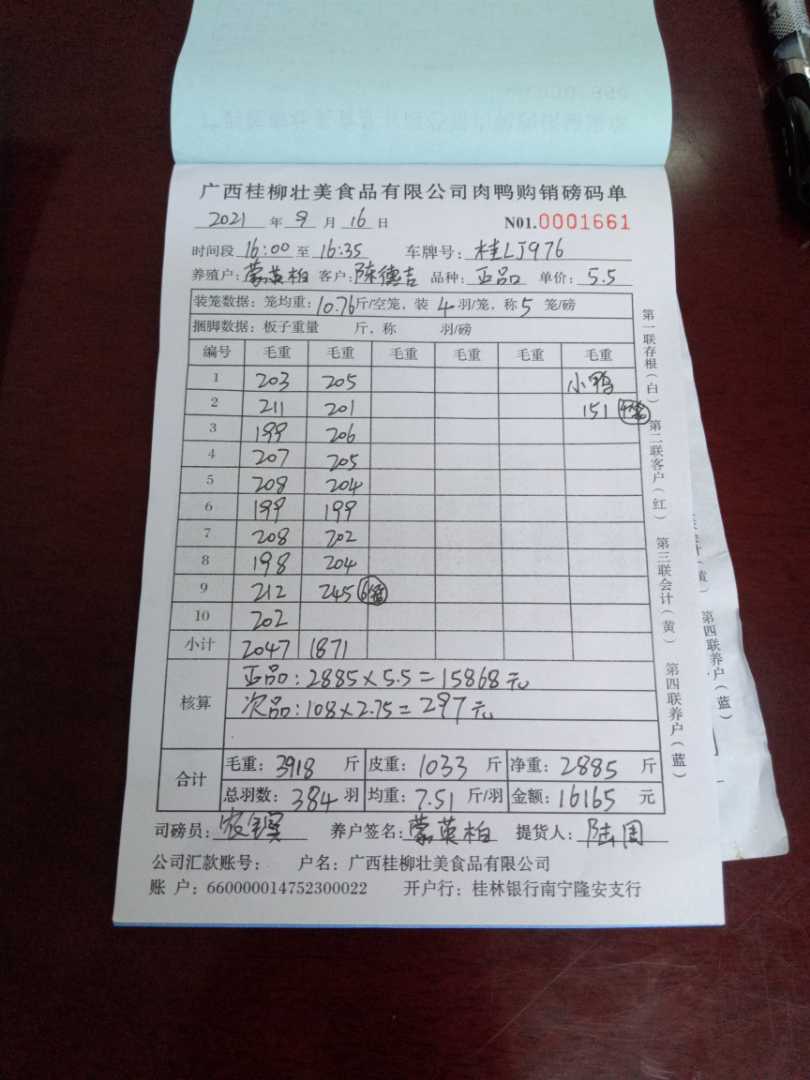 广西桂柳壮美食品有限公司肉鸭购销磅码单
2021 年 9 月 16 日 N01.0001661
时间段 16:00 至 16:35 车牌号: 桂LJ976
养殖户: 蒙英柏 客户: 陈德吉 品种: 正品 单价: 5.5
装笼数据: 笼均重: 10.76 斤/空笼, 装 4 羽/笼, 称 5 笼/磅
捆脚数据: 板子重量 斤, 称 羽/磅
编号 毛重 毛重 毛重 毛重 毛重 毛重
1 203 205 小鸭
2 211 201 151
3 199 206
4 207 205
5 208 204
6 199 199
7 208 202
8 198 204
9 212 245 6笼
10 202
小计 2047 1871
核算
正品: 2885×5.5=15868元
次品: 108×2.75=297元
合计
毛重: 3918 斤 皮重: 1033 斤 净重: 2885 斤
总羽数: 384 羽 均重: 7.51 斤/羽 金额: 16165 元
司磅员: 养户签名: 蒙英柏 提货人:
公司汇款账号: 户名: 广西桂柳壮美食品有限公司
账 户: 660000014752300022 开户行: 桂林银行南宁隆安支行
第一联存根(白) 第二联客户(红) 第三联会计(黄) 第四联养户(蓝)
第四联养户(蓝)